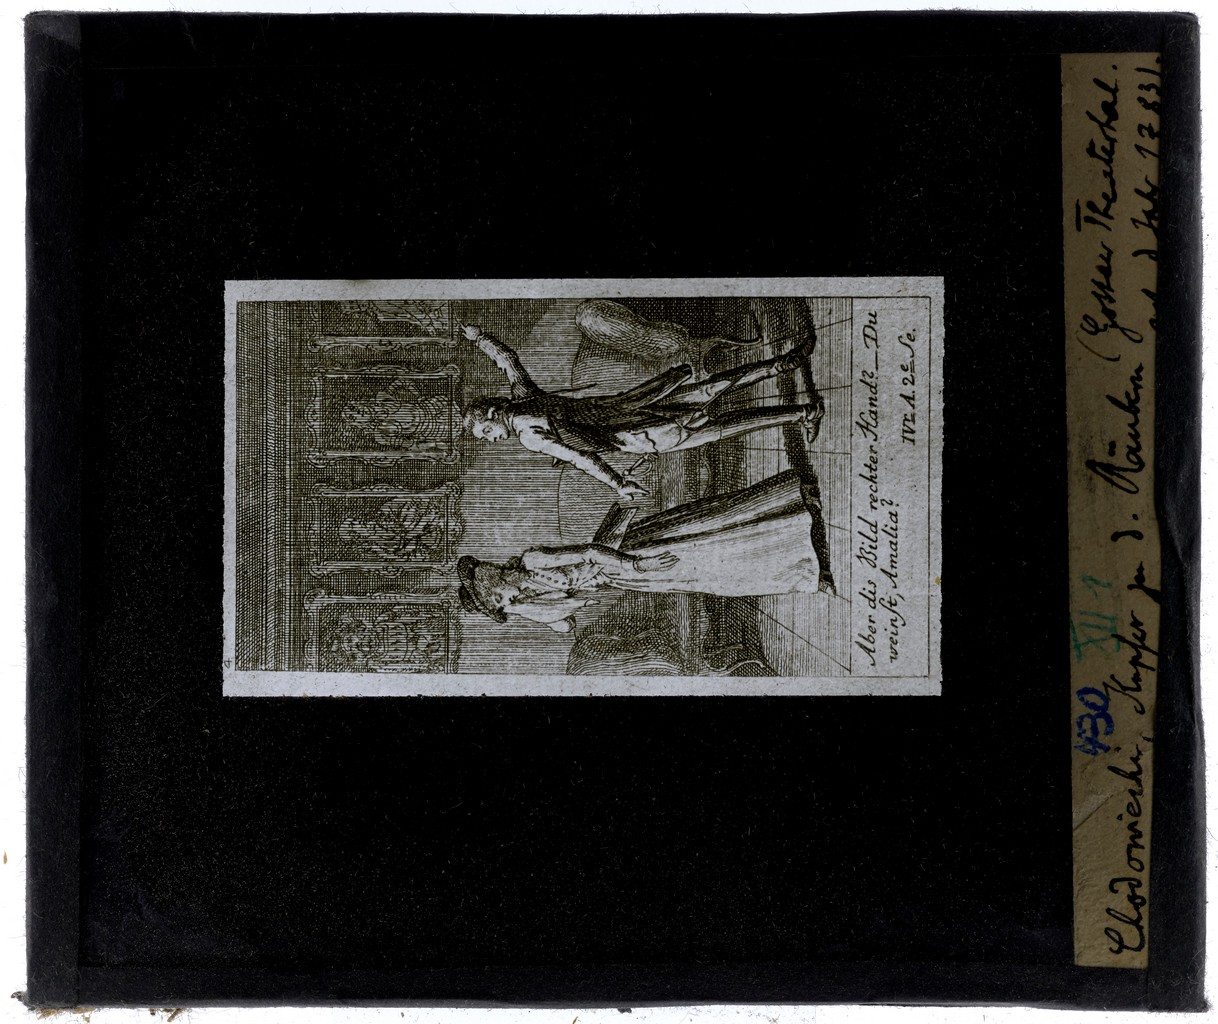 Aber dis Bild rechter Hand? _ Du
weinst, Amalia?
IVr. A. 2e. Se.
4
430 XII
Chodowiecki, Kupfer zu d. Räubern (Gothaer Theaterkal.
auf d Jahr 1783).